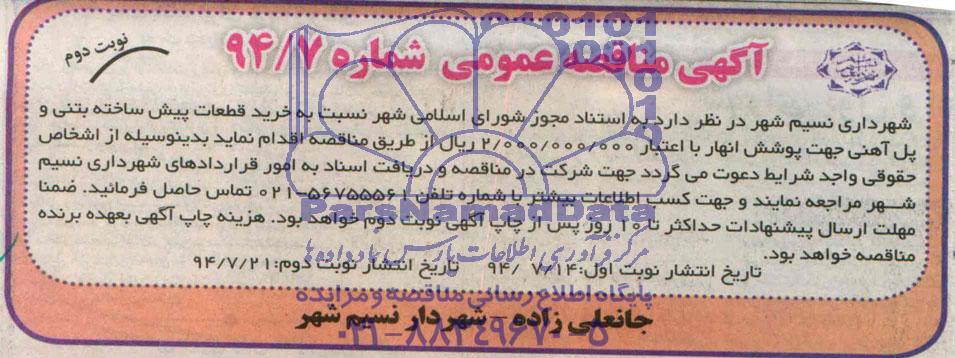 آگهی مناقصه عمومی شماره ۹۴/۷
نوبت دوم
شهرداری نسیم شهر در نظر دارد به استناد مجوز شورای اسلامی شهر نسبت به خرید قطعات پیش ساخته بتنی و
پل آهنی جهت پوشش انهار با اعتبار ۲/۰۰۰/۰۰۰/۰۰۰ ریال از طریق مناقصه اقدام نماید بدینوسیله از اشخاص
حقوقی واجد شرایط دعوت می گردد جهت شرکت در مناقصه و دریافت اسناد به امور قراردادهای شهرداری نسیم
شهر مراجعه نمایند و جهت کسب اطلاعات بیشتر با شماره تلفن ۵۶۷۵۵۵۶۱-۰۲۱ تماس حاصل فرمائید. ضمنا
مهلت ارسال پیشنهادات حداکثر تا ۱۰ روز پس از چاپ آگهی نوبت دوم خواهد بود. هزینه چاپ آگهی بعهده برنده
مناقصه خواهد بود.
تاریخ انتشار نوبت اول:۹۴/۷/۱۴ تاریخ انتشار نوبت دوم:۹۴/۷/۲۱
جانعلی زاده - شهردار نسیم شهر
ParsNamadData
مرکز فرآوری اطلاعات پارس نماد داده ها
پایگاه اطلاع رسانی مناقصه و مزایده
۰۲۱-۸۸۳۴۹۶۷۰-۵